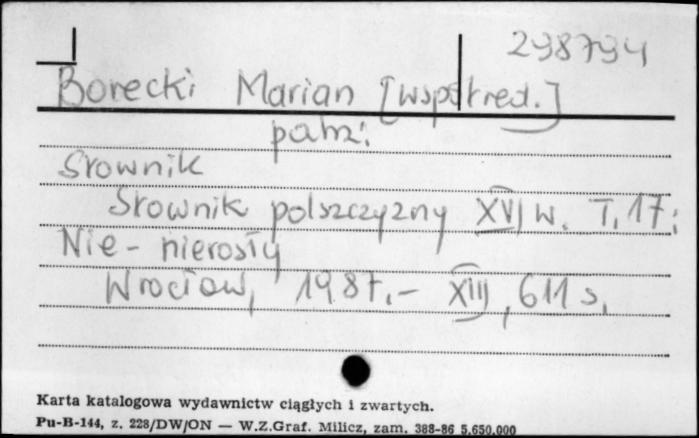 298794
Borecki Marian [współred.]
patrz:
Słownik
Słownik polszczyzny XVI w. T. 17:
Nie - nierosły
Wrocław, 1987.- XIII, 611 s.
Karta katalogowa wydawnictw ciągłych i zwartych.
Pu-B-144, z. 228/DW/ON — W.Z.Graf. Milicz, zam. 388-86 5.650.000